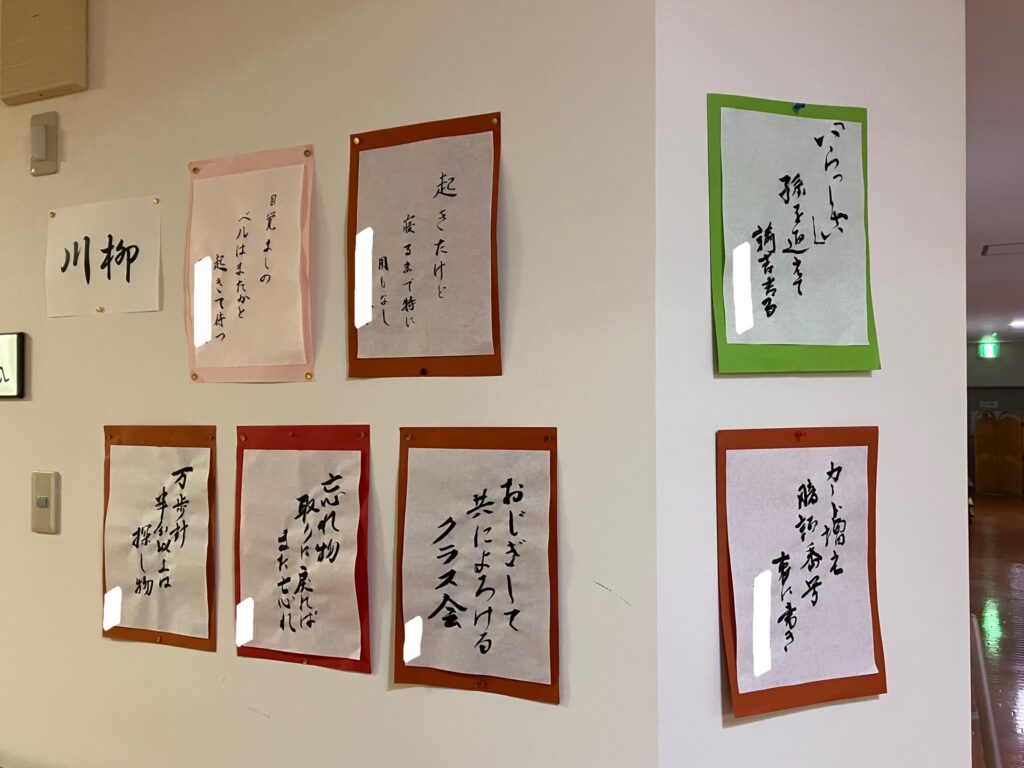 川柳
目覚ましの
ベルはまだかと
起きて待つ
起きたけど
寝るまで特に
用もなし
「いらっしゃい」
孫を迎えて
諭吉去る
万歩計
半分以上は
探し物
忘れ物
取りに戻れば
また忘れ
おじぎして
共によろける
クラス会
カード増え
暗証番号
裏に書き